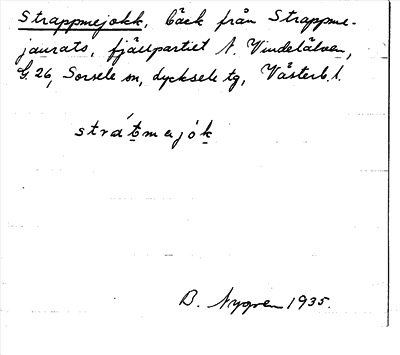 Strappmejokk, bäck från Strappme-
jaurats, fjällpartiet N. Vindelälven,
G. 26, Sorsele sn, Lycksele tg, Västerb. l.
strátmajók
B. Nygren 1935.